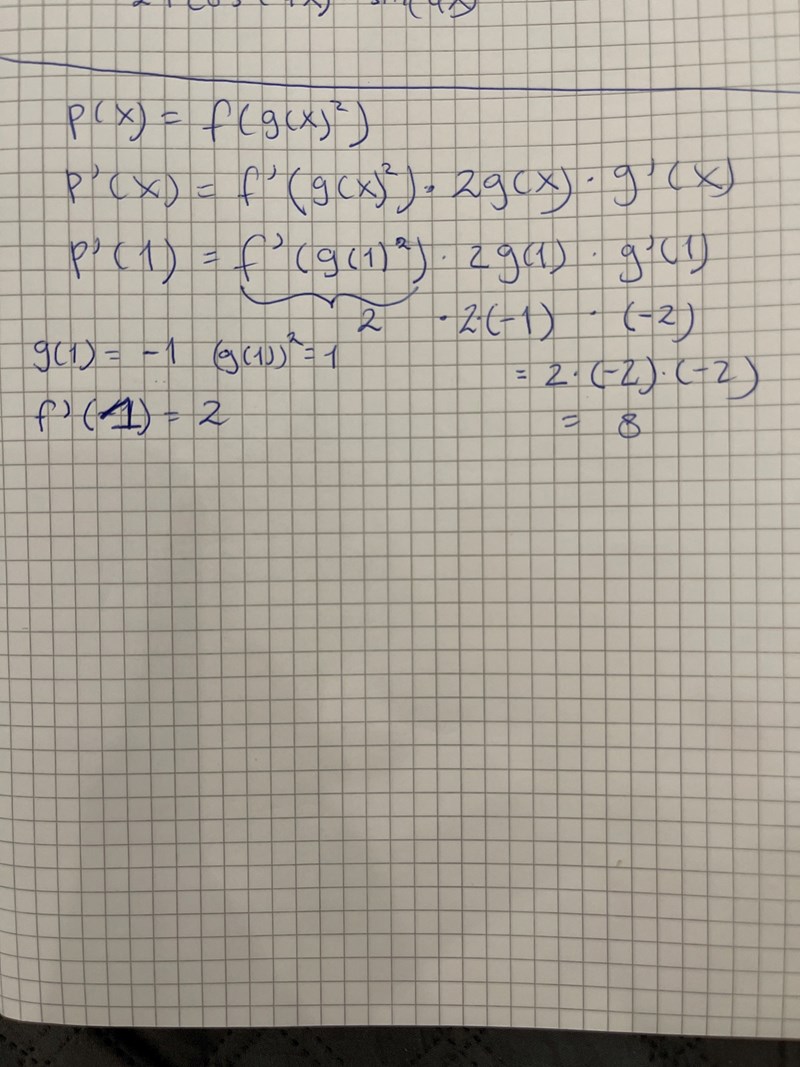 p(x) = f(g(x)²)
p'(x) = f'(g(x)²) · 2g(x) · g'(x)
p'(1) = f'(g(1)²) · 2g(1) · g'(1)
2 · 2·(-1) · (-2)
g(1) = -1 (g(1))² = 1
= 2·(-2)·(-2)
f'(1) = 2
= 8